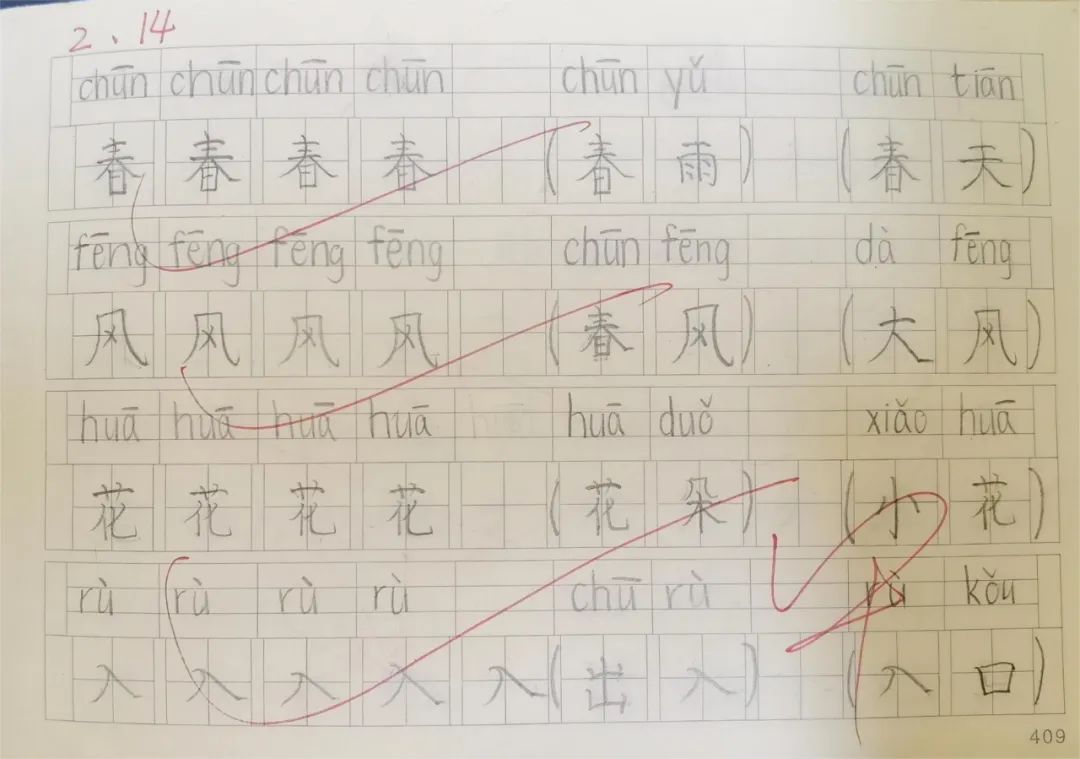 2、14
chūn chūn chūn chūn chūn yǔ chūn tiān
春 春 春 春 (春 雨) (春 天)
fēng fēng fēng fēng chūn fēng dà fēng
风 风 风 风 (春 风) (大 风)
huā huā huā huā huā duǒ xiǎo huā
花 花 花 花 (花 朵) (小 花)
rù rù rù rù chū rù rù kǒu
入 入 入 入 入 (出 入) (入 口)
409